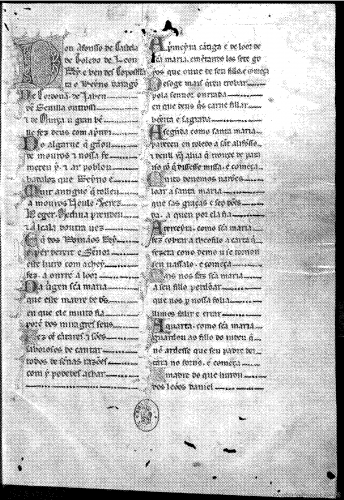 Don Affonso de Castela
de Toledo de Leon
Rey e ben des Compostela
ta o Reyno daragō
De Cordoua de Jahen
de Seuilla outrossi
De Murça u gran bē
lle fez deus com aprendi
Do algarue que gãou
de mouros e nossa fe
meteu y. e ar poblou
badallouz que Reyno e
Muit antigue que tolleu
a mouros Neule Xerez
Beger. Medina prendeu
e Alcala doutra uez
E que dos Romãos Rey
e per dereit e Sennor
este liuro com achey
fez. a onrr e a loor
Da uirgen santa maria
que este madre de deus
en que ele muito fia
poren dos miragres seus
Fez os cantares e sões
saborosos de cantar
todos de sennas razões
com y podedes achar
A primeyra cātiga e de loor de
santa maria. ementando los sete go
yos que ouue de seu fillo. e começa
Des oge mais quer eu trobar
pola sennor onrrada
en que deus quis carne fillar
bēeita e sagrada
A segūda como santa maria
pareceu en toledo a sant alifonsso
e deu ll ūa alua que trouxe de parayso
con que dissesse missa. e começa
Muito deuemos uarões
loar a santa maria
que sas graças e seus dões
da. a quen por ela fia
A terceyra. como santa maria
fez cobrar a theofilo a carta que
fezera como demo u se tornou
seu uassalo. e começa
Mais nos faz santa maria
a seu fillo perdōar
que nos per nossa folia
ll imos falir e errar
A quarta. como santa maria
guardou ao fillo do iudeu que
non ardesse que seu padre dei
tara no forno. e começa
A madre do que liurou
dos leões daniel